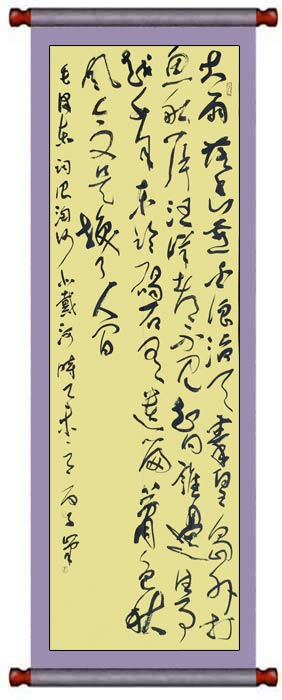 大雨落幽燕白浪滔天秦皇岛外打
鱼船一片汪洋都不见知向谁边往事
越千年东临碣石有遗篇萧瑟秋
风今又是换了人间
毛泽东词浪淘沙北戴河时乙未